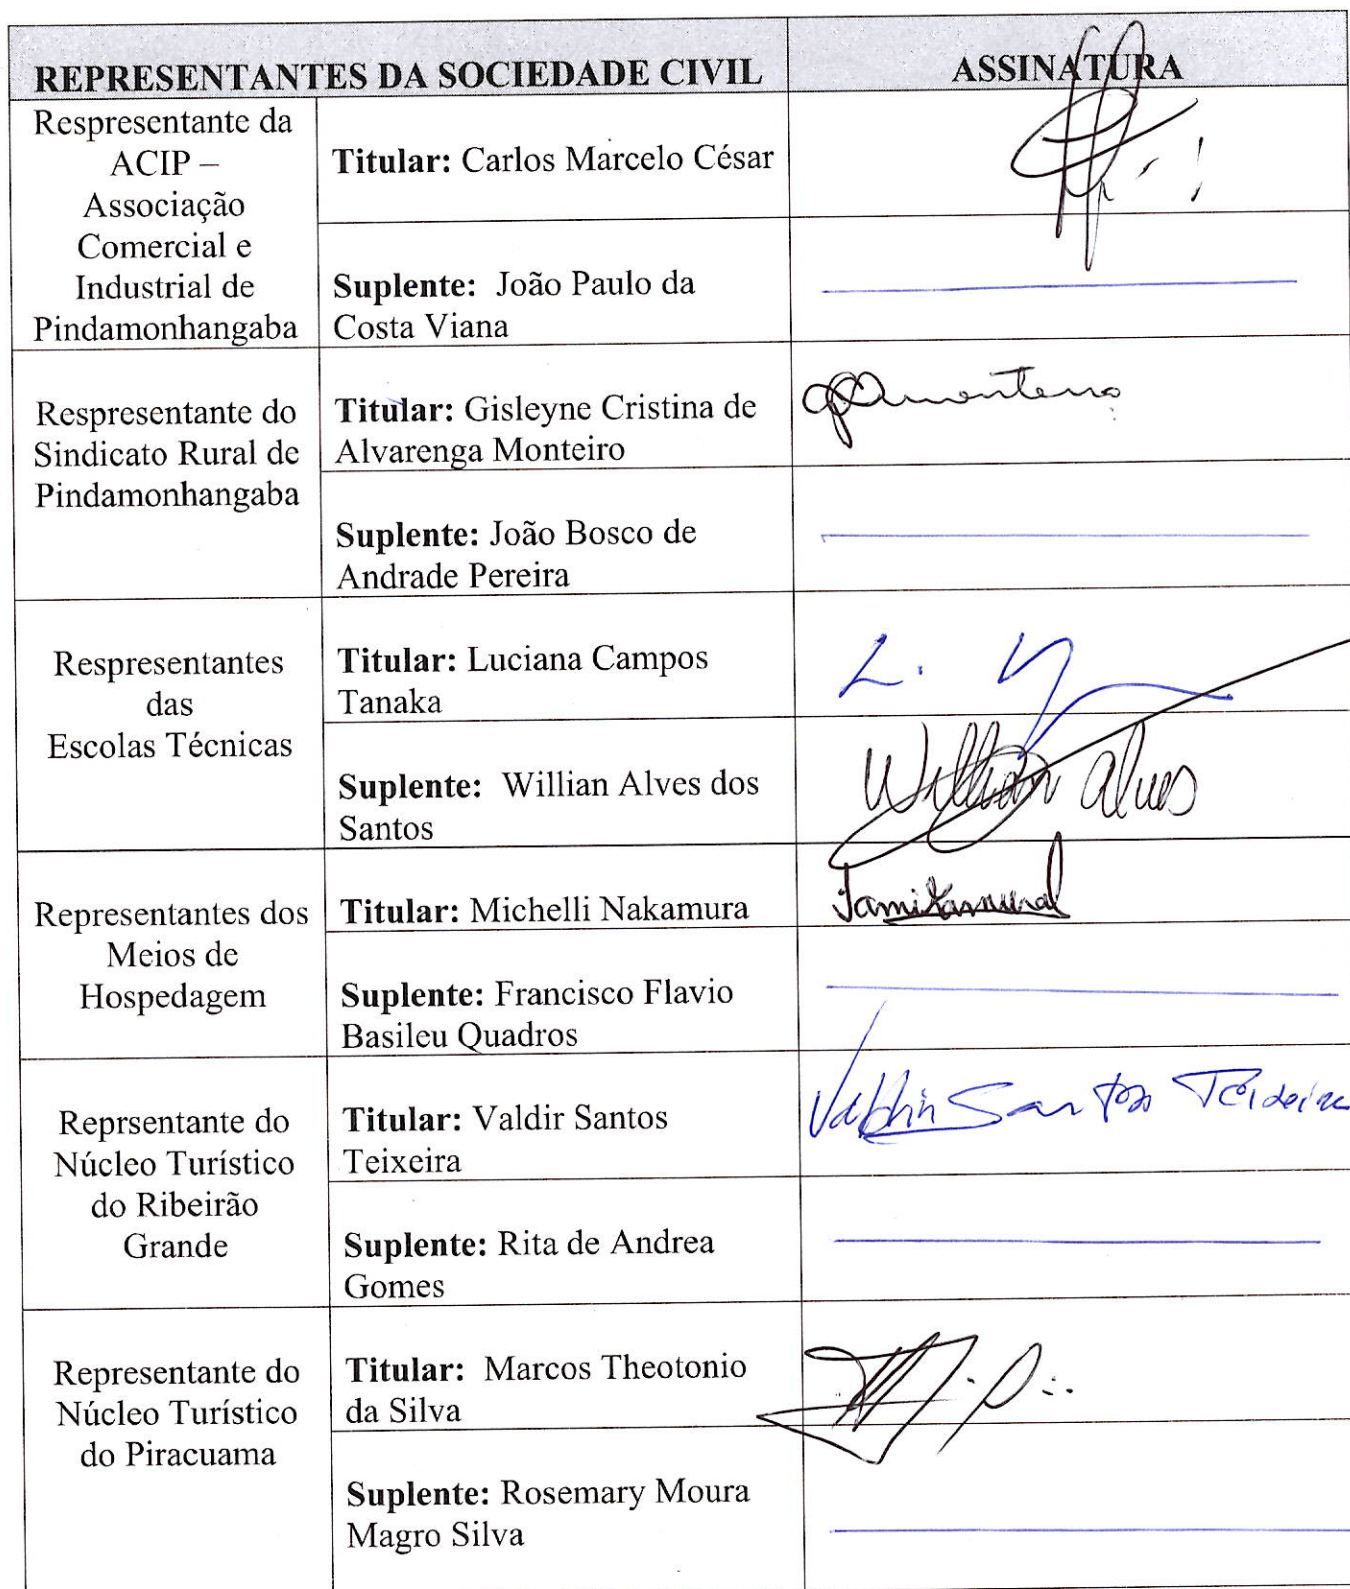 REPRESENTANTES DA SOCIEDADE CIVIL
ASSINATURA
Respresentante da
ACIP –
Associação
Comercial e
Industrial de
Pindamonhangaba
Titular: Carlos Marcelo César
Suplente: João Paulo da
Costa Viana
Respresentante do
Sindicato Rural de
Pindamonhangaba
Titular: Gisleyne Cristina de
Alvarenga Monteiro
Suplente: João Bosco de
Andrade Pereira
Respresentantes
das
Escolas Técnicas
Titular: Luciana Campos
Tanaka
Suplente: Willian Alves dos
Santos
Willian Alves
Representantes dos
Meios de
Hospedagem
Titular: Michelli Nakamura
Suplente: Francisco Flavio
Basileu Quadros
Reprsentante do
Núcleo Turístico
do Ribeirão
Grande
Titular: Valdir Santos
Teixeira
Valdir Santos Teixeira
Suplente: Rita de Andrea
Gomes
Representante do
Núcleo Turístico
do Piracuama
Titular: Marcos Theotonio
da Silva
Suplente: Rosemary Moura
Magro Silva